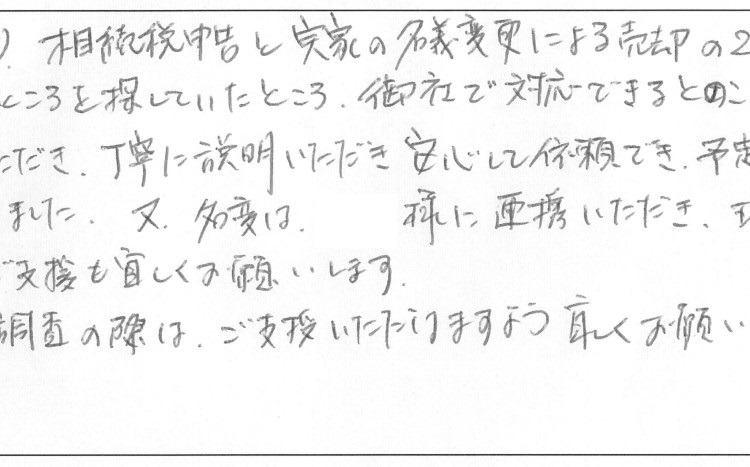 ). 相続税申告と実家の名義変更による売却の2
ところを探していたところ、御社で対応できるとのこ
ただき、丁寧に説明いただき安心して依頼でき、予定
ました。又、名変は、 様に連携いただき、現
ご支援も宜しくお願いします。
調査の際は、ご支援いただけますよう宜しくお願い